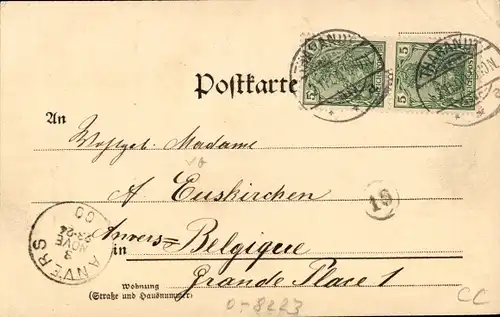 THARANDT THARANDT
5 5
Postkarte
An
Wohlgeb. Madame
A Euskirchen
19
Anvers= in Belgique
Grande Place 1
Wohnung
(Straße und Hausnummer)
ANVERS
3
NOVE
23-24
00
0-8223
CC